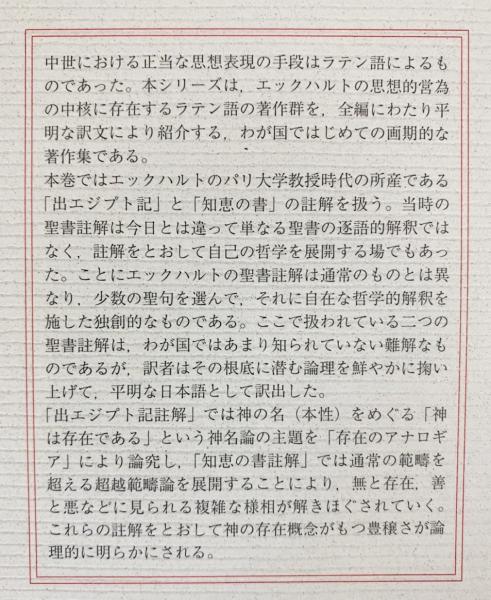 中世における正当な思想表現の手段はラテン語によるも
のであった。本シリーズは，エックハルトの思想的営為
の中核に存在するラテン語の著作群を，全編にわたり平
明な訳文により紹介する，わが国ではじめての画期的な
著作集である。
本巻ではエックハルトのパリ大学教授時代の所産である
「出エジプト記」と「知恵の書」の註解を扱う。当時の
聖書註解は今日とは違って単なる聖書の逐語的解釈では
なく，註解をとおして自己の哲学を展開する場でもあっ
た。ことにエックハルトの聖書註解は通常のものとは異
なり，少数の聖句を選んで，それに自在な哲学的解釈を
施した独創的なものである。ここで扱われている二つの
聖書註解は，わが国ではあまり知られていない難解なも
のであるが，訳者はその根底に潜む論理を鮮やかに掬い
上げて，平明な日本語として訳出した。
「出エジプト記註解」では神の名（本性）をめぐる「神
は存在である」という神名論の主題を「存在のアナロギ
ア」により論究し，「知恵の書註解」では通常の範疇を
超える超越範疇論を展開することにより，無と存在，善
と悪などに見られる複雑な様相が解きほぐされていく。
これらの註解をとおして神の存在概念がもつ豊穣さが論
理的に明らかにされる。